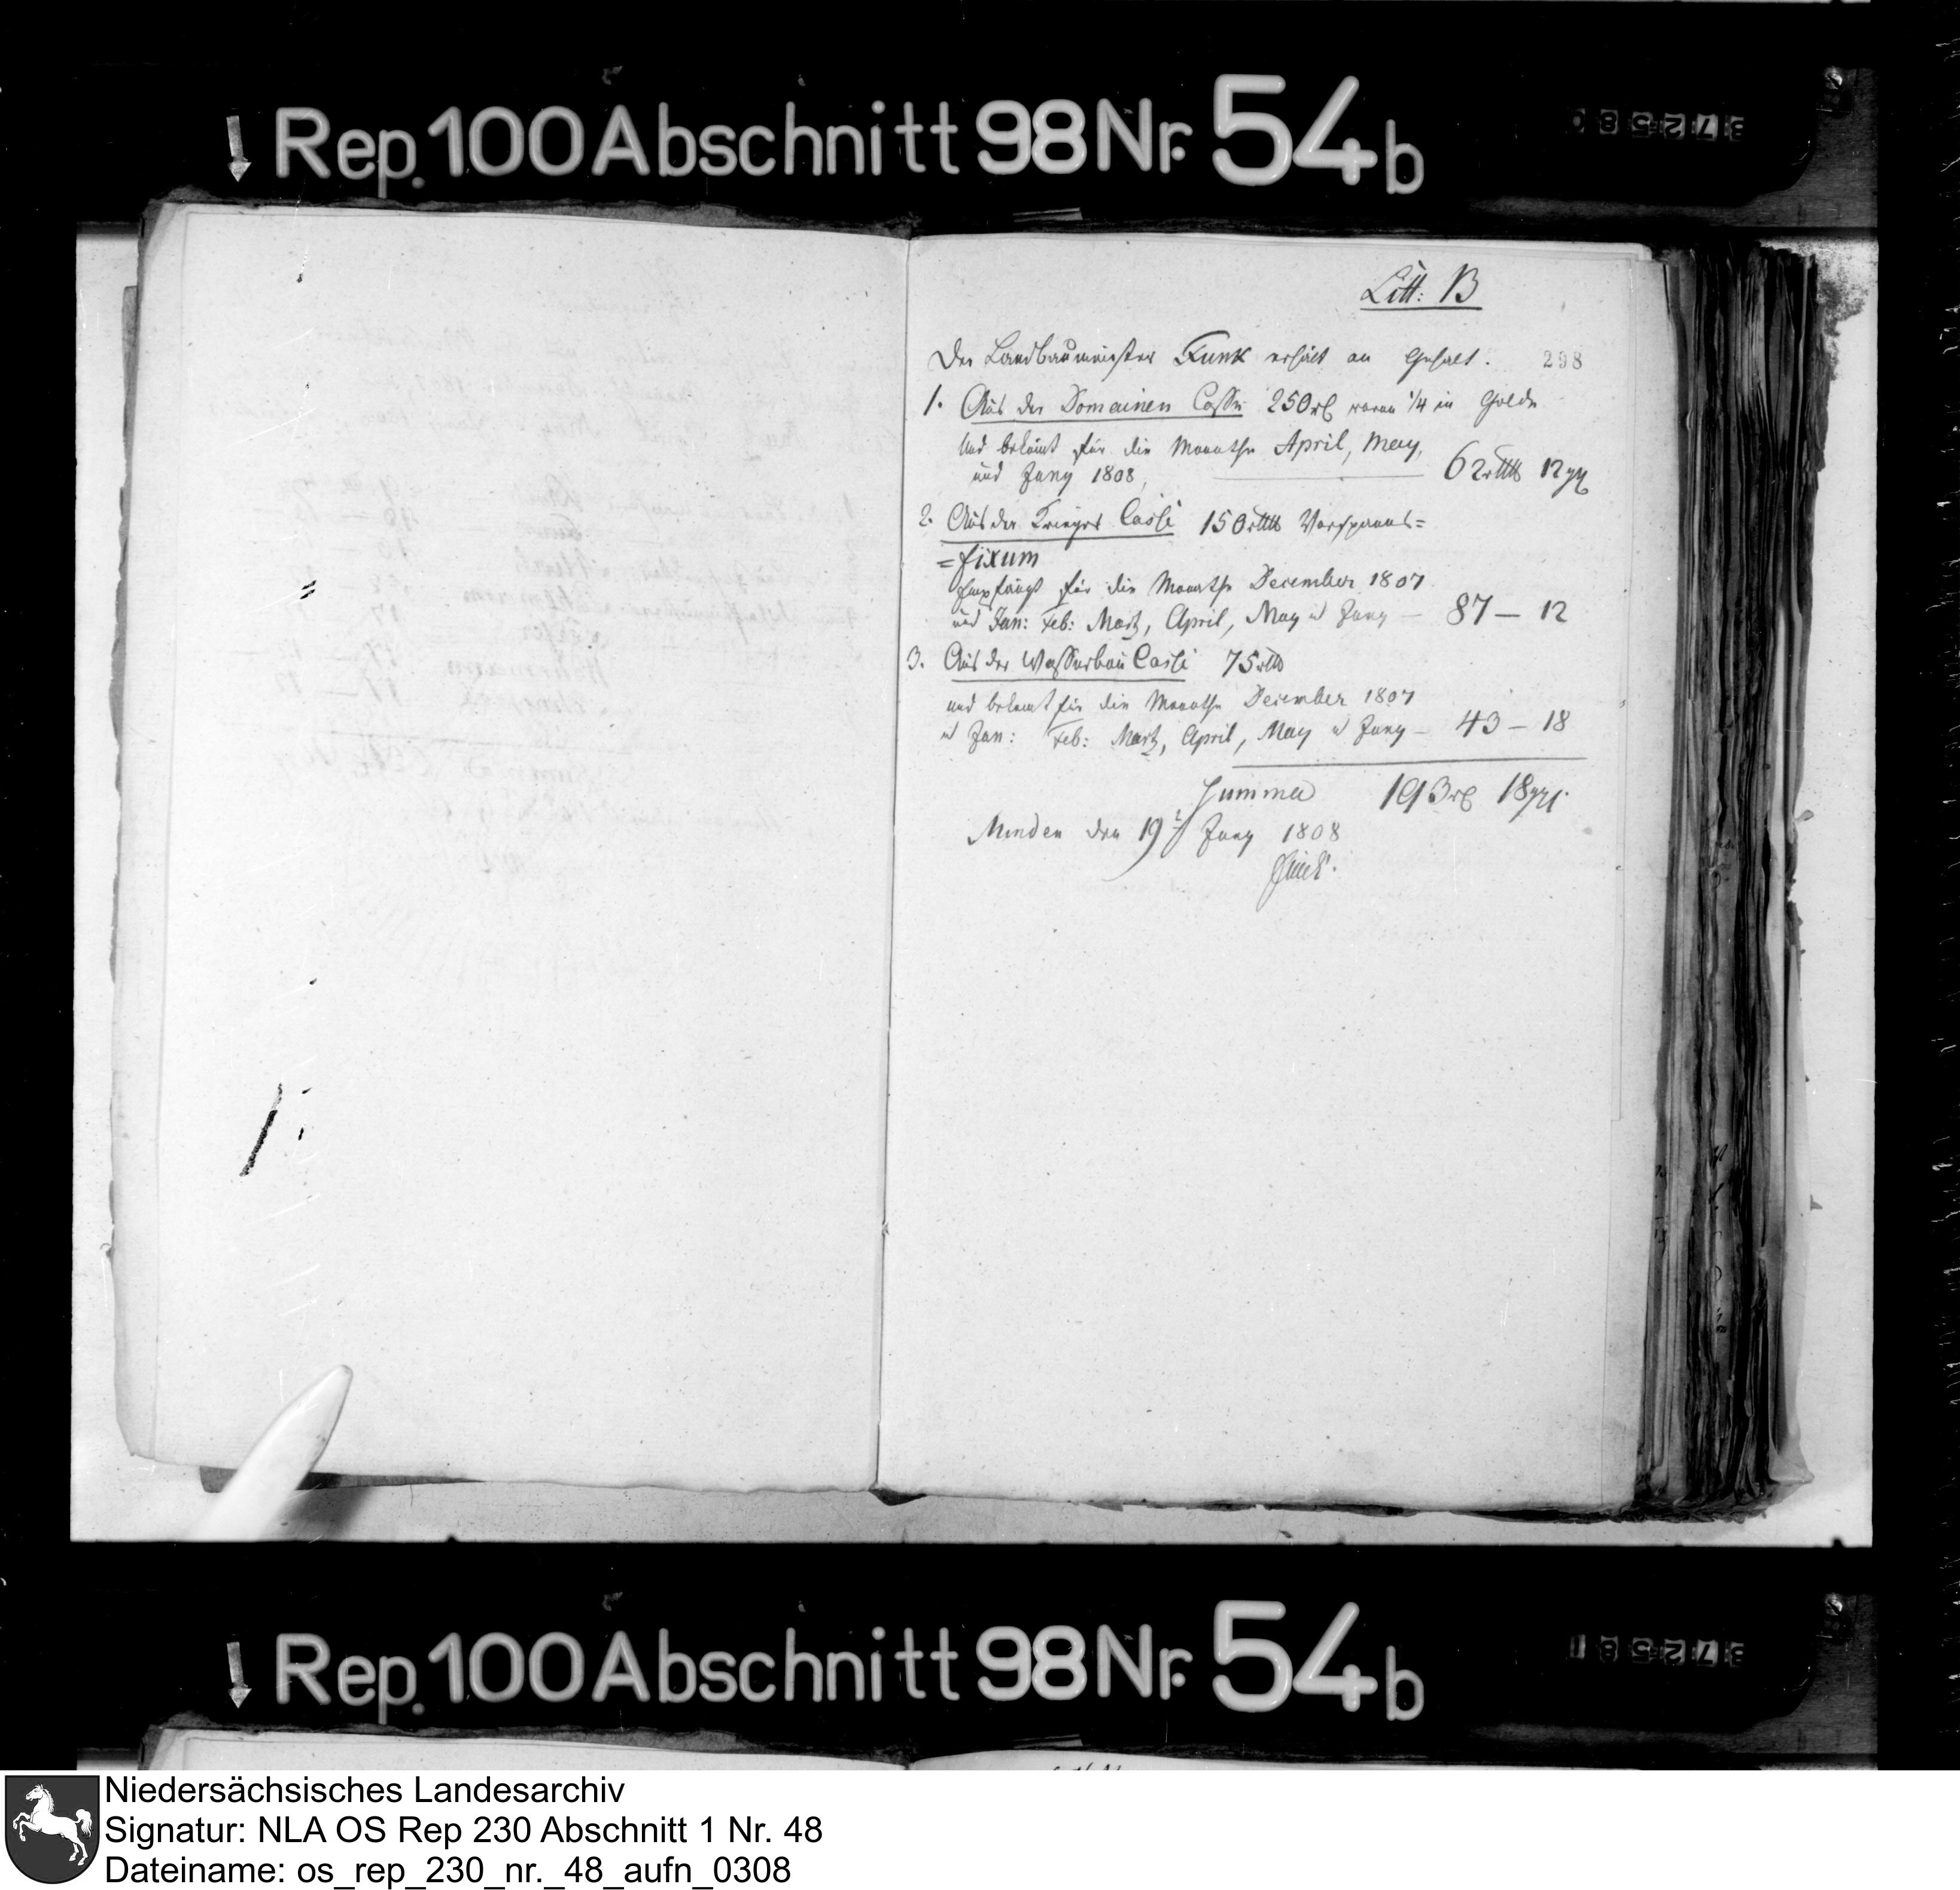 Rep. 100 Abschnitt 98 Nr. 54 b
372580
Litt: B
Der Landbaumeister Funk erhält an Gehalt.
298
1. Aus der Domainen Casse 250 rl woran 1/4 in Golde
und bekömt für die Monathe April, May,
und Juny 1808, 62 rthlr 12 ggl
2. Aus der Krieges Casse 150 rthlr Vorspanns=
=fixum
Empfängt für die Monathe December 1807
und Jan: Feb: Martz, April, May u Juny — 87 — 12
3. Aus der Wasserbau Casse 75 rthlr
und bekomt für die Monathe December 1807
u Jan: Feb: Martz, April, May u Juny — 43 — 18
Summa 193 rl 18 ggl.
Minden den 19t Juny 1808
Funk.
Rep. 100 Abschnitt 98 Nr. 54 b
372581
Niedersächsisches Landesarchiv
Signatur: NLA OS Rep 230 Abschnitt 1 Nr. 48
Dateiname: os_rep_230_nr._48_aufn_0308